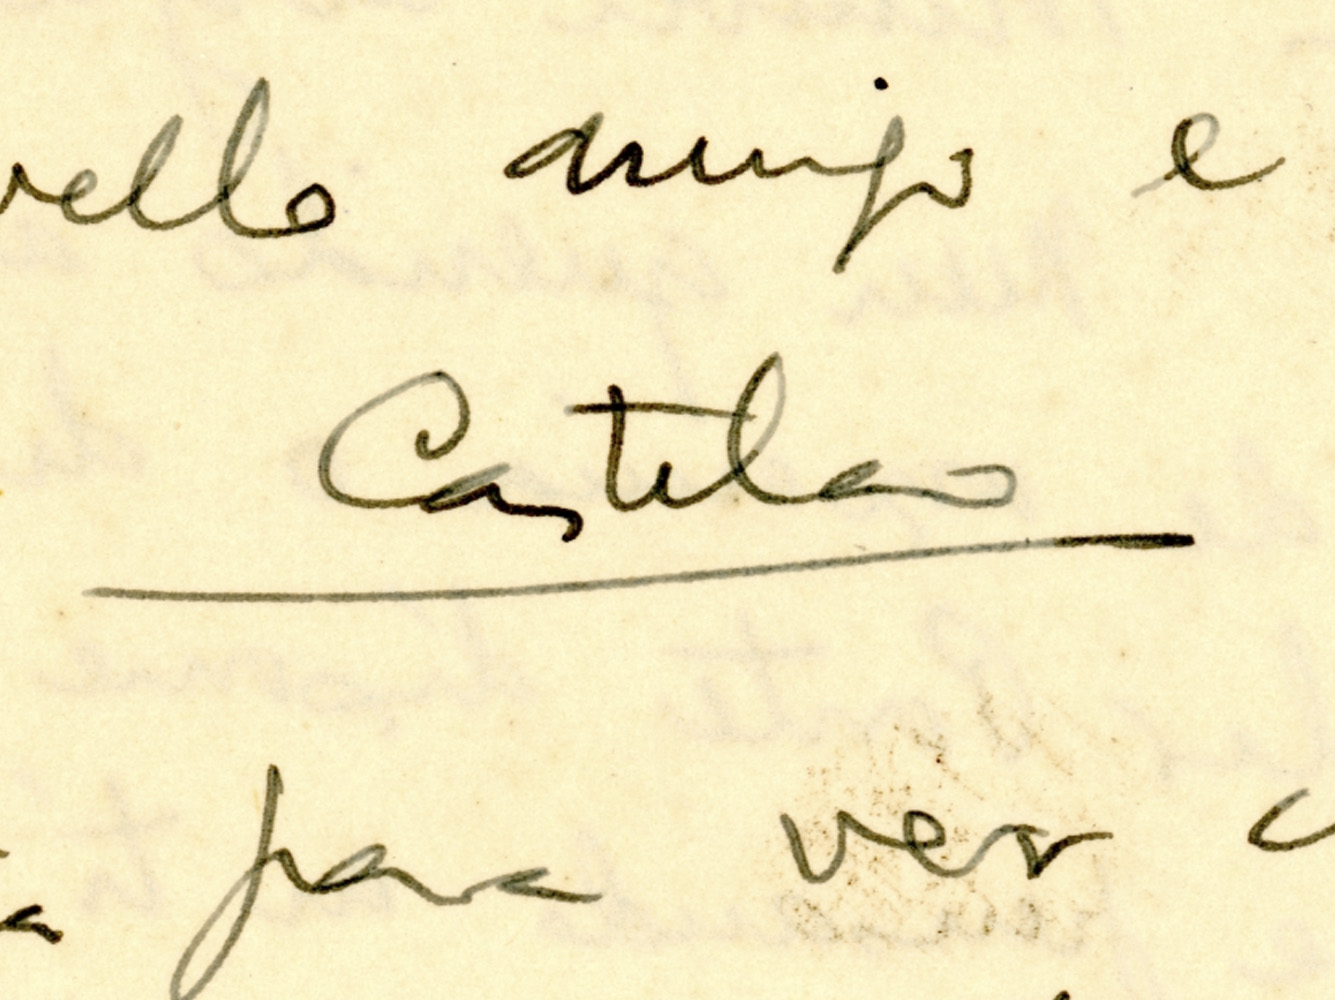 vello amigo e
Castelao
a para ver